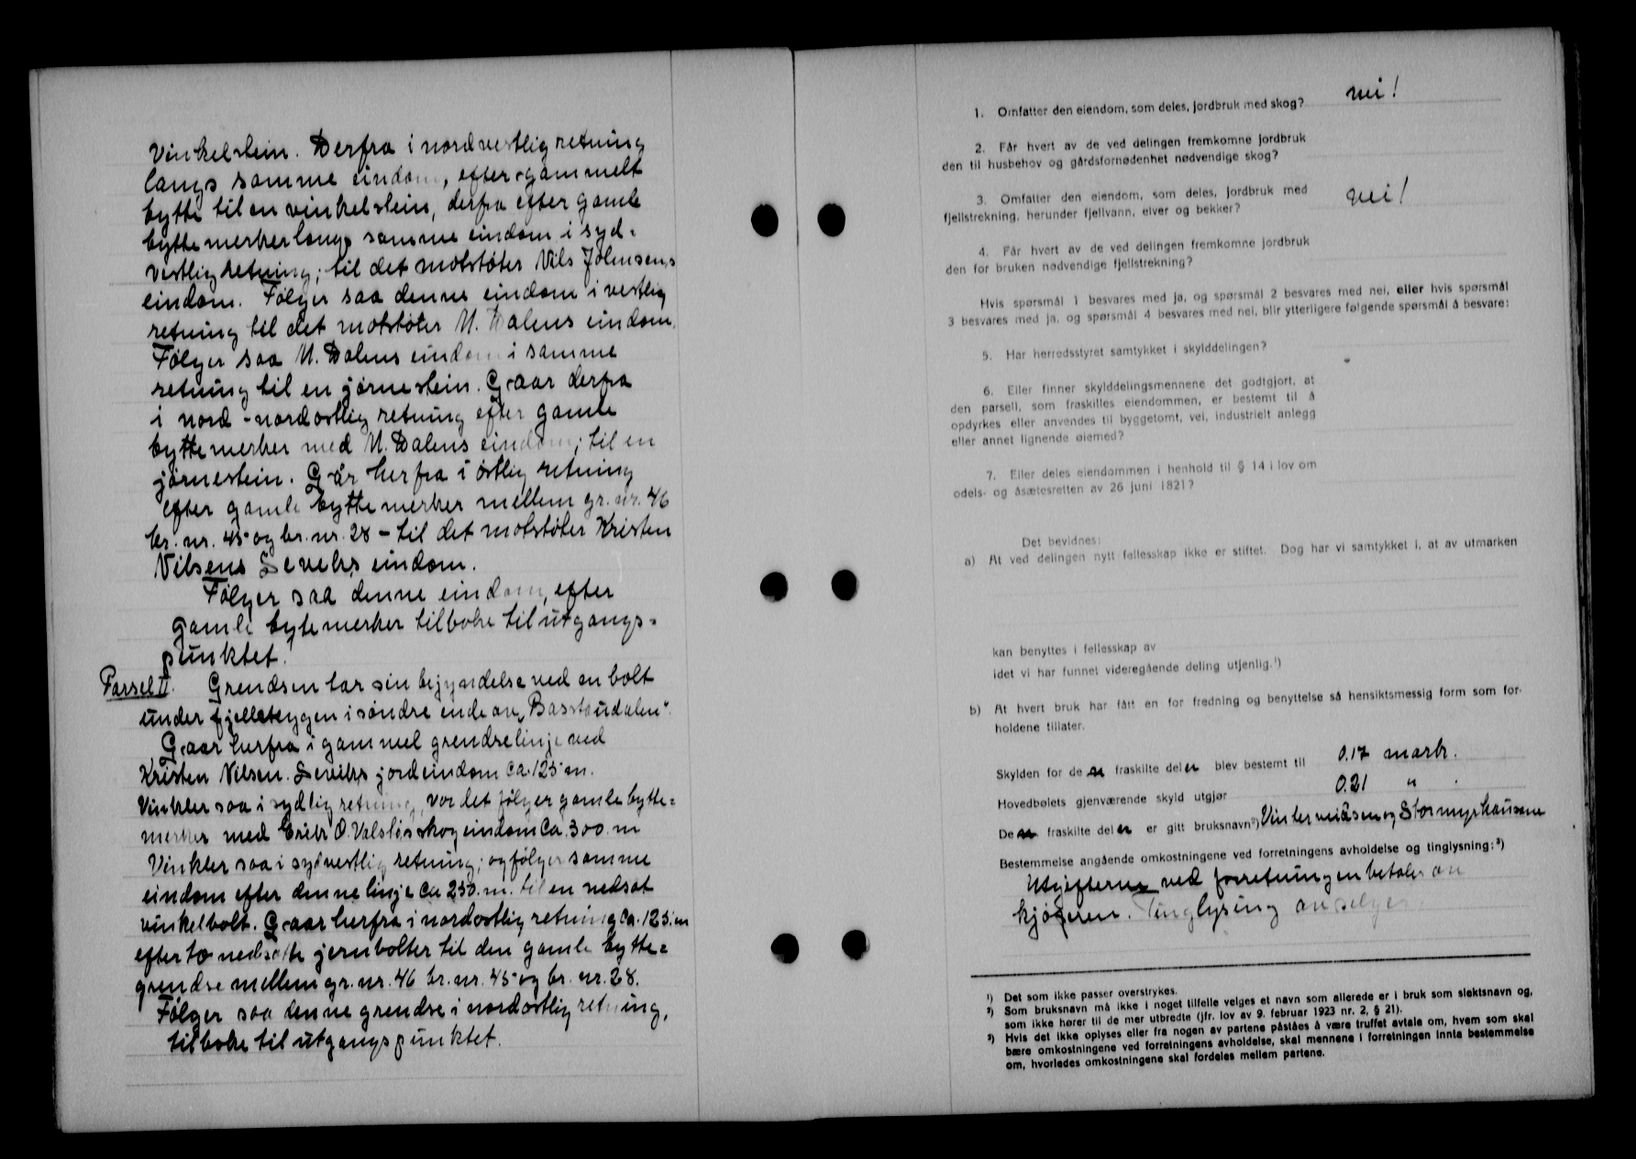 Vinkelstein. Derfra i nordvestlig retning
langs samme eindom, efter gammelt
bytte til en vinkelstein, derfra efter gamle
byttemerker langs samme eindom i syd-
vestlig retning; til det motstøter Nils Johnsens
eindom. Følger saa denne eindom i vestlig
retning til det motstøter M. Dalens eindom.
Følger saa M. Dalens eindom i samme
retning til en jørnestein. Gaar derfra
i nord-nordostlig retning efter gamle
byttemerker med M. Dalens eindom; til en
jørnestein. Går herfra i østlig retning
efter gamle byttemerker mellem gr. nr. 46
br. nr. 45 og br. nr. 28 - til det motstøter Kristen
Nilsens Seviks eindom.
Følger saa denne eindom, efter
gamle bytemerker tilbake til utgangs-
punktet.
Parsel II. Grendsen tar sin begyndelse ved en bolt
under fjellskyggen i søndre ende av "Basstaudalen".
Gaar herfra i gammel grendselinje ved
Kristen Nilsen Seviks jordeindom ca. 125 m.
Vinkler saa i sydlig retning, vor det følger gamle bytte-
merker med Erik O. Valsløs skogeindom ca. 300 m
Vinkler saa i sydvestlig retning; og følger samme
eindom efter denne linje ca 250. m. til en nedsat
vinkelbolt. Gaar herfra i nordostlig retning ca. 125 m
efter to nedsatte jernbolter til den gamle bytte-
grendse mellem gr. nr. 46 br. nr. 45 og br. nr. 28.
Følger saa denne grendse i nordostlig retning,
tilbake til utgangspunktet.
1. Omfatter den eiendom, som deles, jordbruk med skog? nei!
2. Får hvert av de ved delingen fremkomne jordbruk
den til husbehov og gårdsfornødenhet nødvendige skog?
3. Omfatter den eiendom, som deles, jordbruk med
fjellstrekning, herunder fjellvann, elver og bekker? nei!
4. Får hvert av de ved delingen fremkomne jordbruk
den for bruken nødvendige fjellstrekning?
Hvis spørsmål 1 besvares med ja, og spørsmål 2 besvares med nei, eller hvis spørsmål
3 besvares med ja, og spørsmål 4 besvares med nei, blir ytterligere følgende spørsmål å besvare:
5. Har herredsstyret samtykket i skylddelingen?
6. Eller finner skylddelingsmennene det godtgjort, at
den parsell, som fraskilles eiendommen, er bestemt til å
opdyrkes eller anvendes til byggetomt, vei, industrielt anlegg
eller annet lignende øiemed?
7. Eller deles eiendommen i henhold til § 14 i lov om
odels- og åsætesretten av 26 juni 1821?
Det bevidnes:
a) At ved delingen nytt fellesskap ikke er stiftet. Dog har vi samtykket i, at av utmarken
kan benyttes i fellesskap av
idet vi har funnet videregående deling utjenlig.¹)
b) At hvert bruk har fått en for fredning og benyttelse så hensiktsmessig form som for-
holdene tillater.
Skylden for de fraskilte deler blev bestemt til 0.17 mark.
Hovedbølets gjenværende skyld utgjør 0.21 " .
De fraskilte deler er gitt bruksnavn²)
Bestemmelse angående omkostningene ved forretningens avholdelse og tinglysning:³)
Utgifterne ved forretningen betales av
kjøperen. Tinglysing av selger
¹) Det som ikke passer overstrykes.
²) Som bruksnavn må ikke i noget tilfelle velges et navn som allerede er i bruk som slektsnavn og,
som ikke hører til de mer utbredte (jfr. lov av 9. februar 1923 nr. 2, § 21).
³) Hvis det ikke oplyses eller fra nogen av partene påståes å være truffet avtale om, hvem som skal
bære omkostningene ved forretningens avholdelse, skal mennene i forretningen innta bestemmelse
om, hvorledes omkostningene skal fordeles mellem partene.